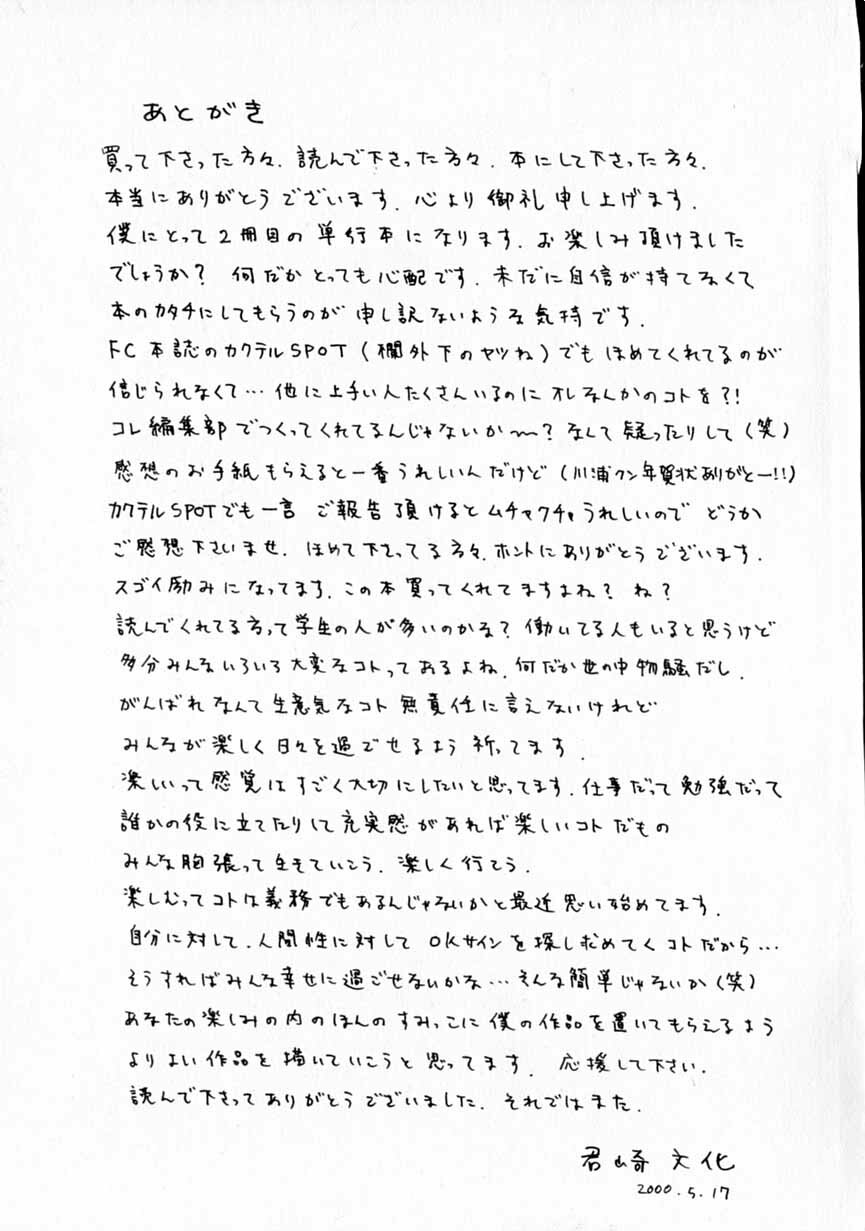 あとがき
買って下さった方々、読んで下さった方々、本にして下さった方々、
本当にありがとうございます。心より御礼申し上げます。
僕にとって2冊目の単行本になります。お楽しみ頂けました
でしょうか? 何だかとっても心配です。未だに自信が持てなくて
本のカタチにしてもらうのが申し訳ないような気持です。
FC本誌のカクテルSPOT(欄外下のヤツね)でもほめてくれてるのが
信じられなくて…他に上手い人たくさんいるのにオレなんかのコトを?!
コレ編集部でつくってくれてるんじゃないか〜?なんて疑ったりして(笑)
感想のお手紙もらえると一番うれしいんだけど(川浦クン年賀状ありがとー!!)
カクテルSPOTでも一言 ご報告頂けるとムチャクチャうれしいので どうか
ご感想下さいませ。ほめて下さってる方々、ホントにありがとうございます。
スゴイ励みになってます。この本買ってくれてますよね? ね?
読んでくれてる方って学生の人が多いのかな?働いてる人もいると思うけど
多分みんないろいろ大変なコトってあるよね。何だか世の中物騒だし。
がんばれなんて生意気なコト無責任に言えないけれど
みんなが楽しく日々を過ごせるよう祈ってます。
楽しいって感覚はすごく大切にしたいと思ってます。仕事だって勉強だって
誰かの役に立てたりして充実感があれば楽しいコトだもの
みんな胸張って生きていこう。楽しく行こう。
楽しむってコトは義務でもあるんじゃないかと最近思い始めてます。
自分に対して、人間性に対してOKサインを探し求めてくコトだから…
そうすればみんな幸せに過ごせないかな…そんな簡単じゃないか(笑)
あなたの楽しみの内のほんのすみっこに僕の作品を置いてもらえるよう
よりよい作品を描いていこうと思ってます。 応援して下さい。
読んで下さってありがとうございました。それではまた。
君崎文化
2000.5.17